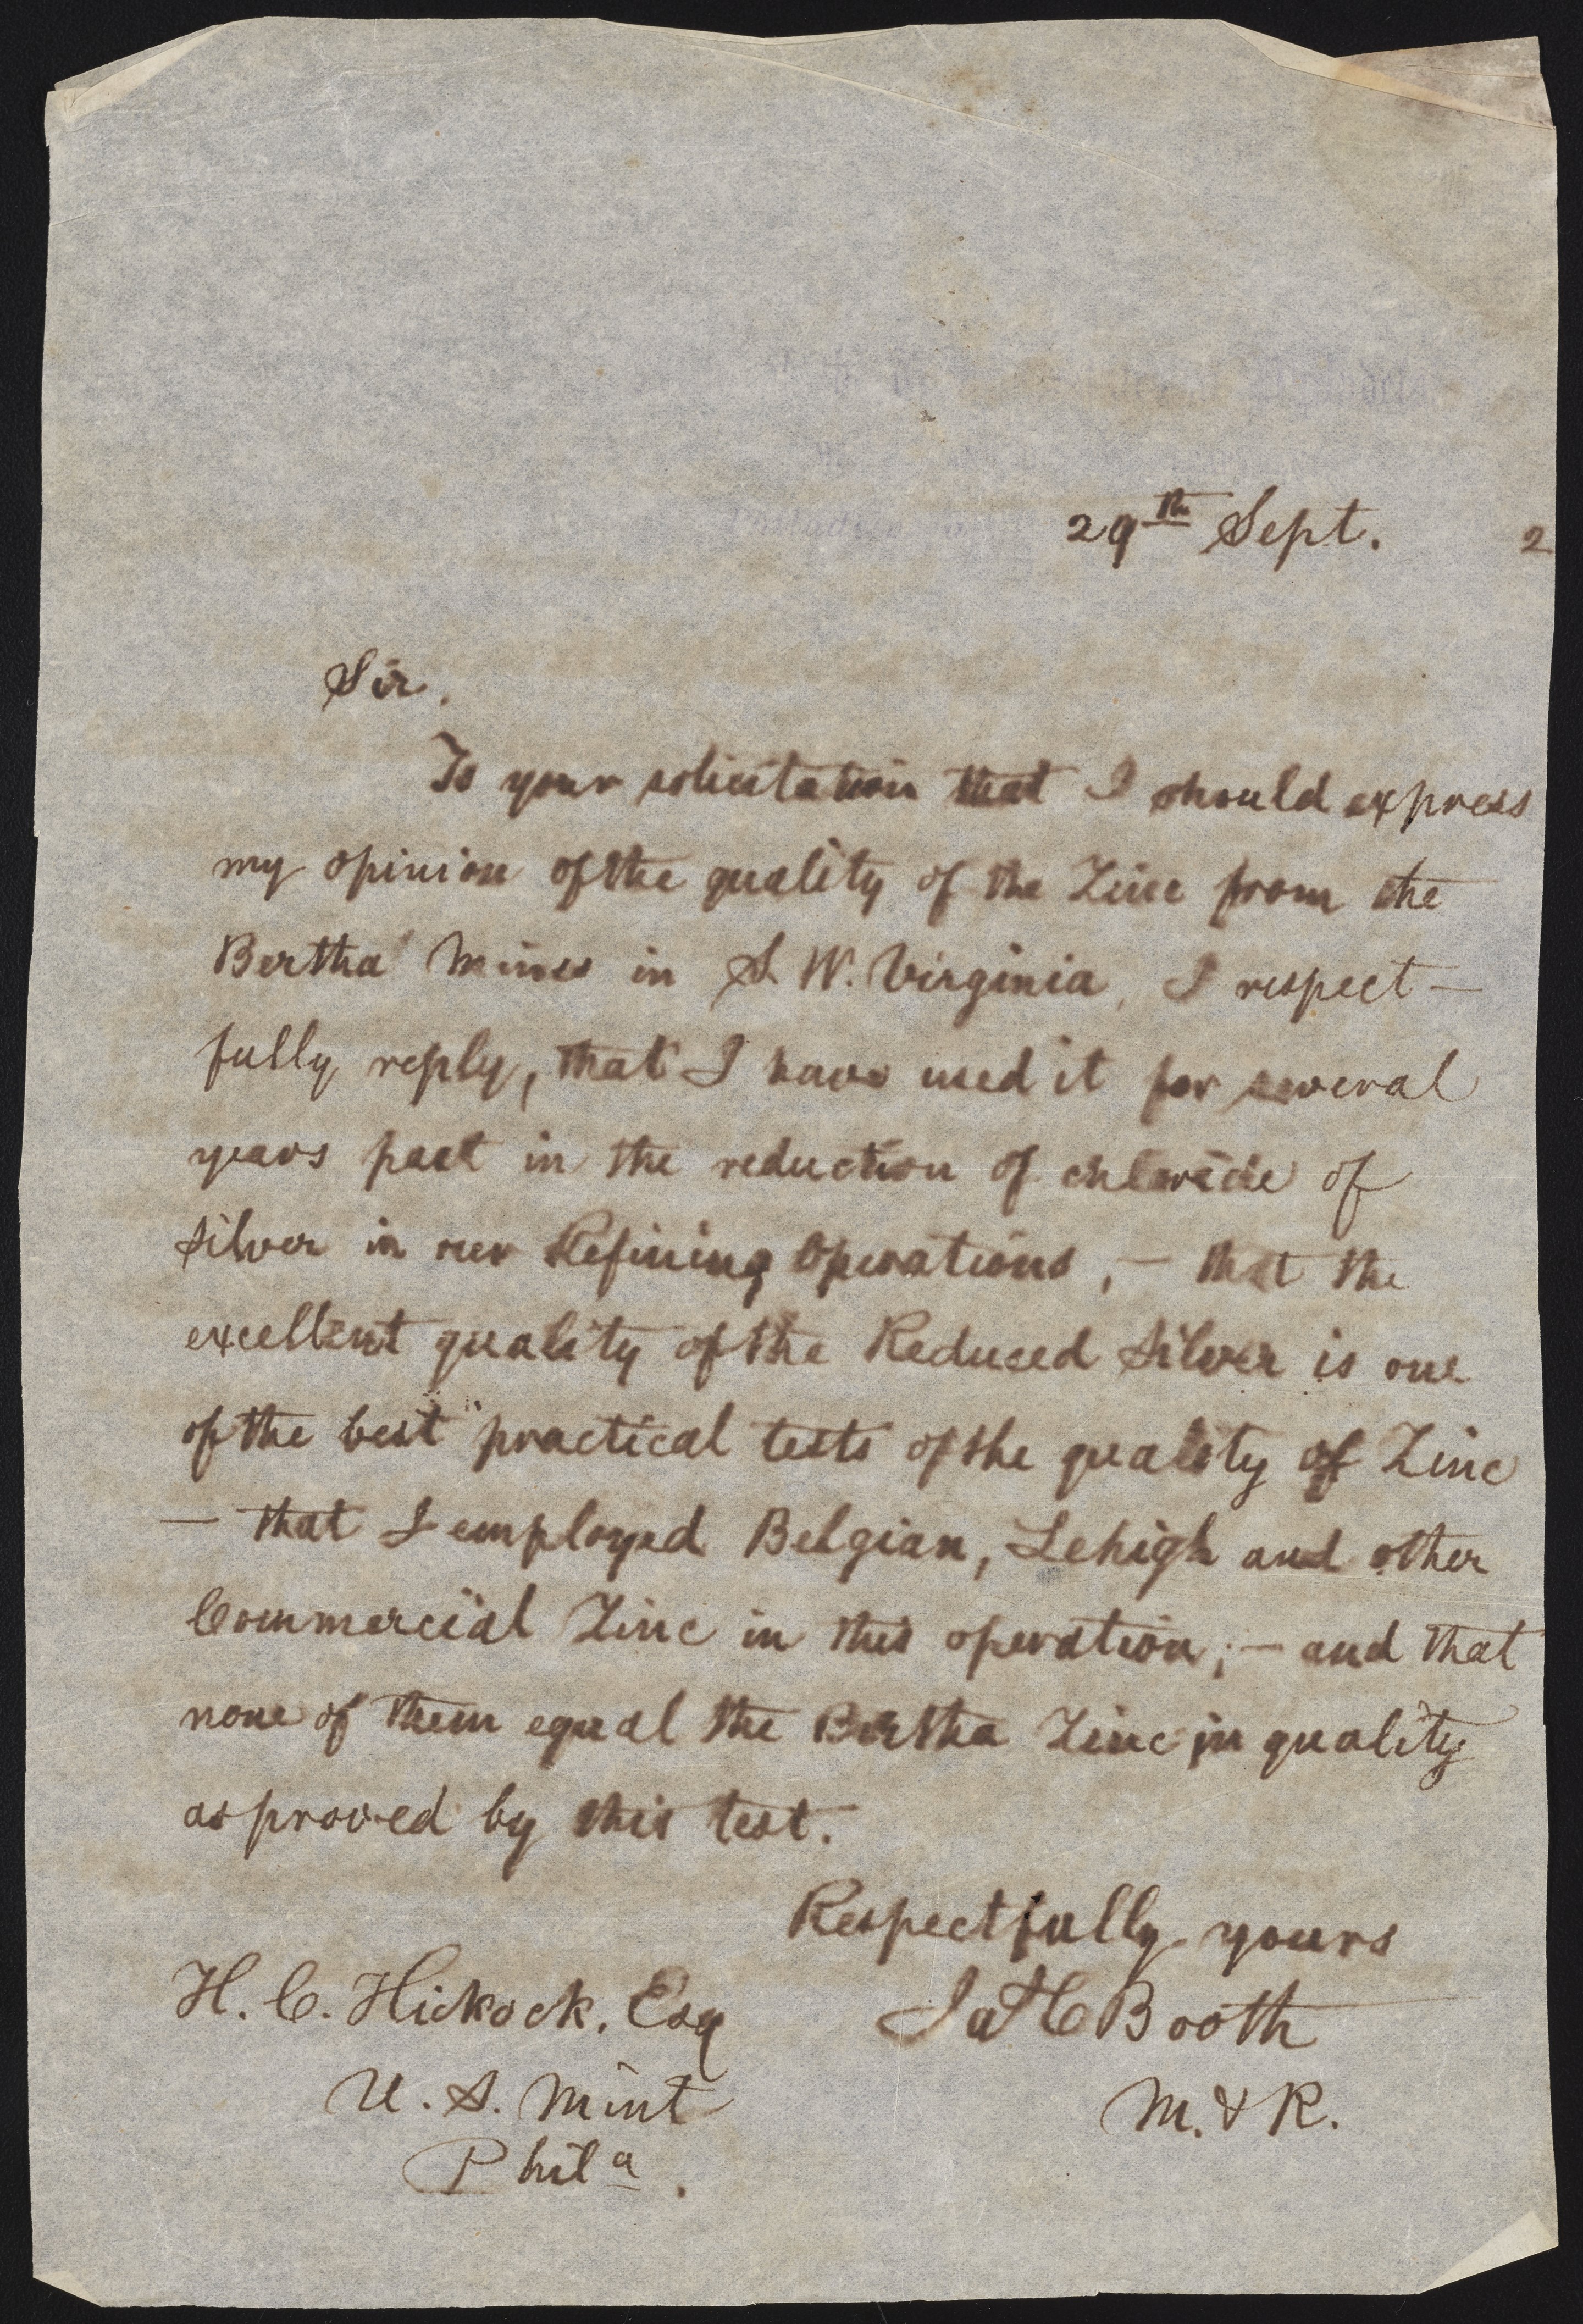 29th Sept. 2
Sir.
To your solicitation that I should express
my opinion of the quality of the Zinc from the
Bertha Mines in S. W. Virginia, I respect-
fully reply, that I have used it for several
years past in the reduction of chloride of
Silver in our Refining Operations, - that the
excellent quality of the Reduced Silver is one
of the best practical tests of the quality of Zinc
- that I employed Belgian, Lehigh and other
Commercial Zinc in this operation; - and that
none of them equal the Bertha Zinc in quality
as proved by this test.
Respectfully yours
Jas C Booth
M. & R.
H. C. Hickock. Esq
U. S. Mint
Phila.